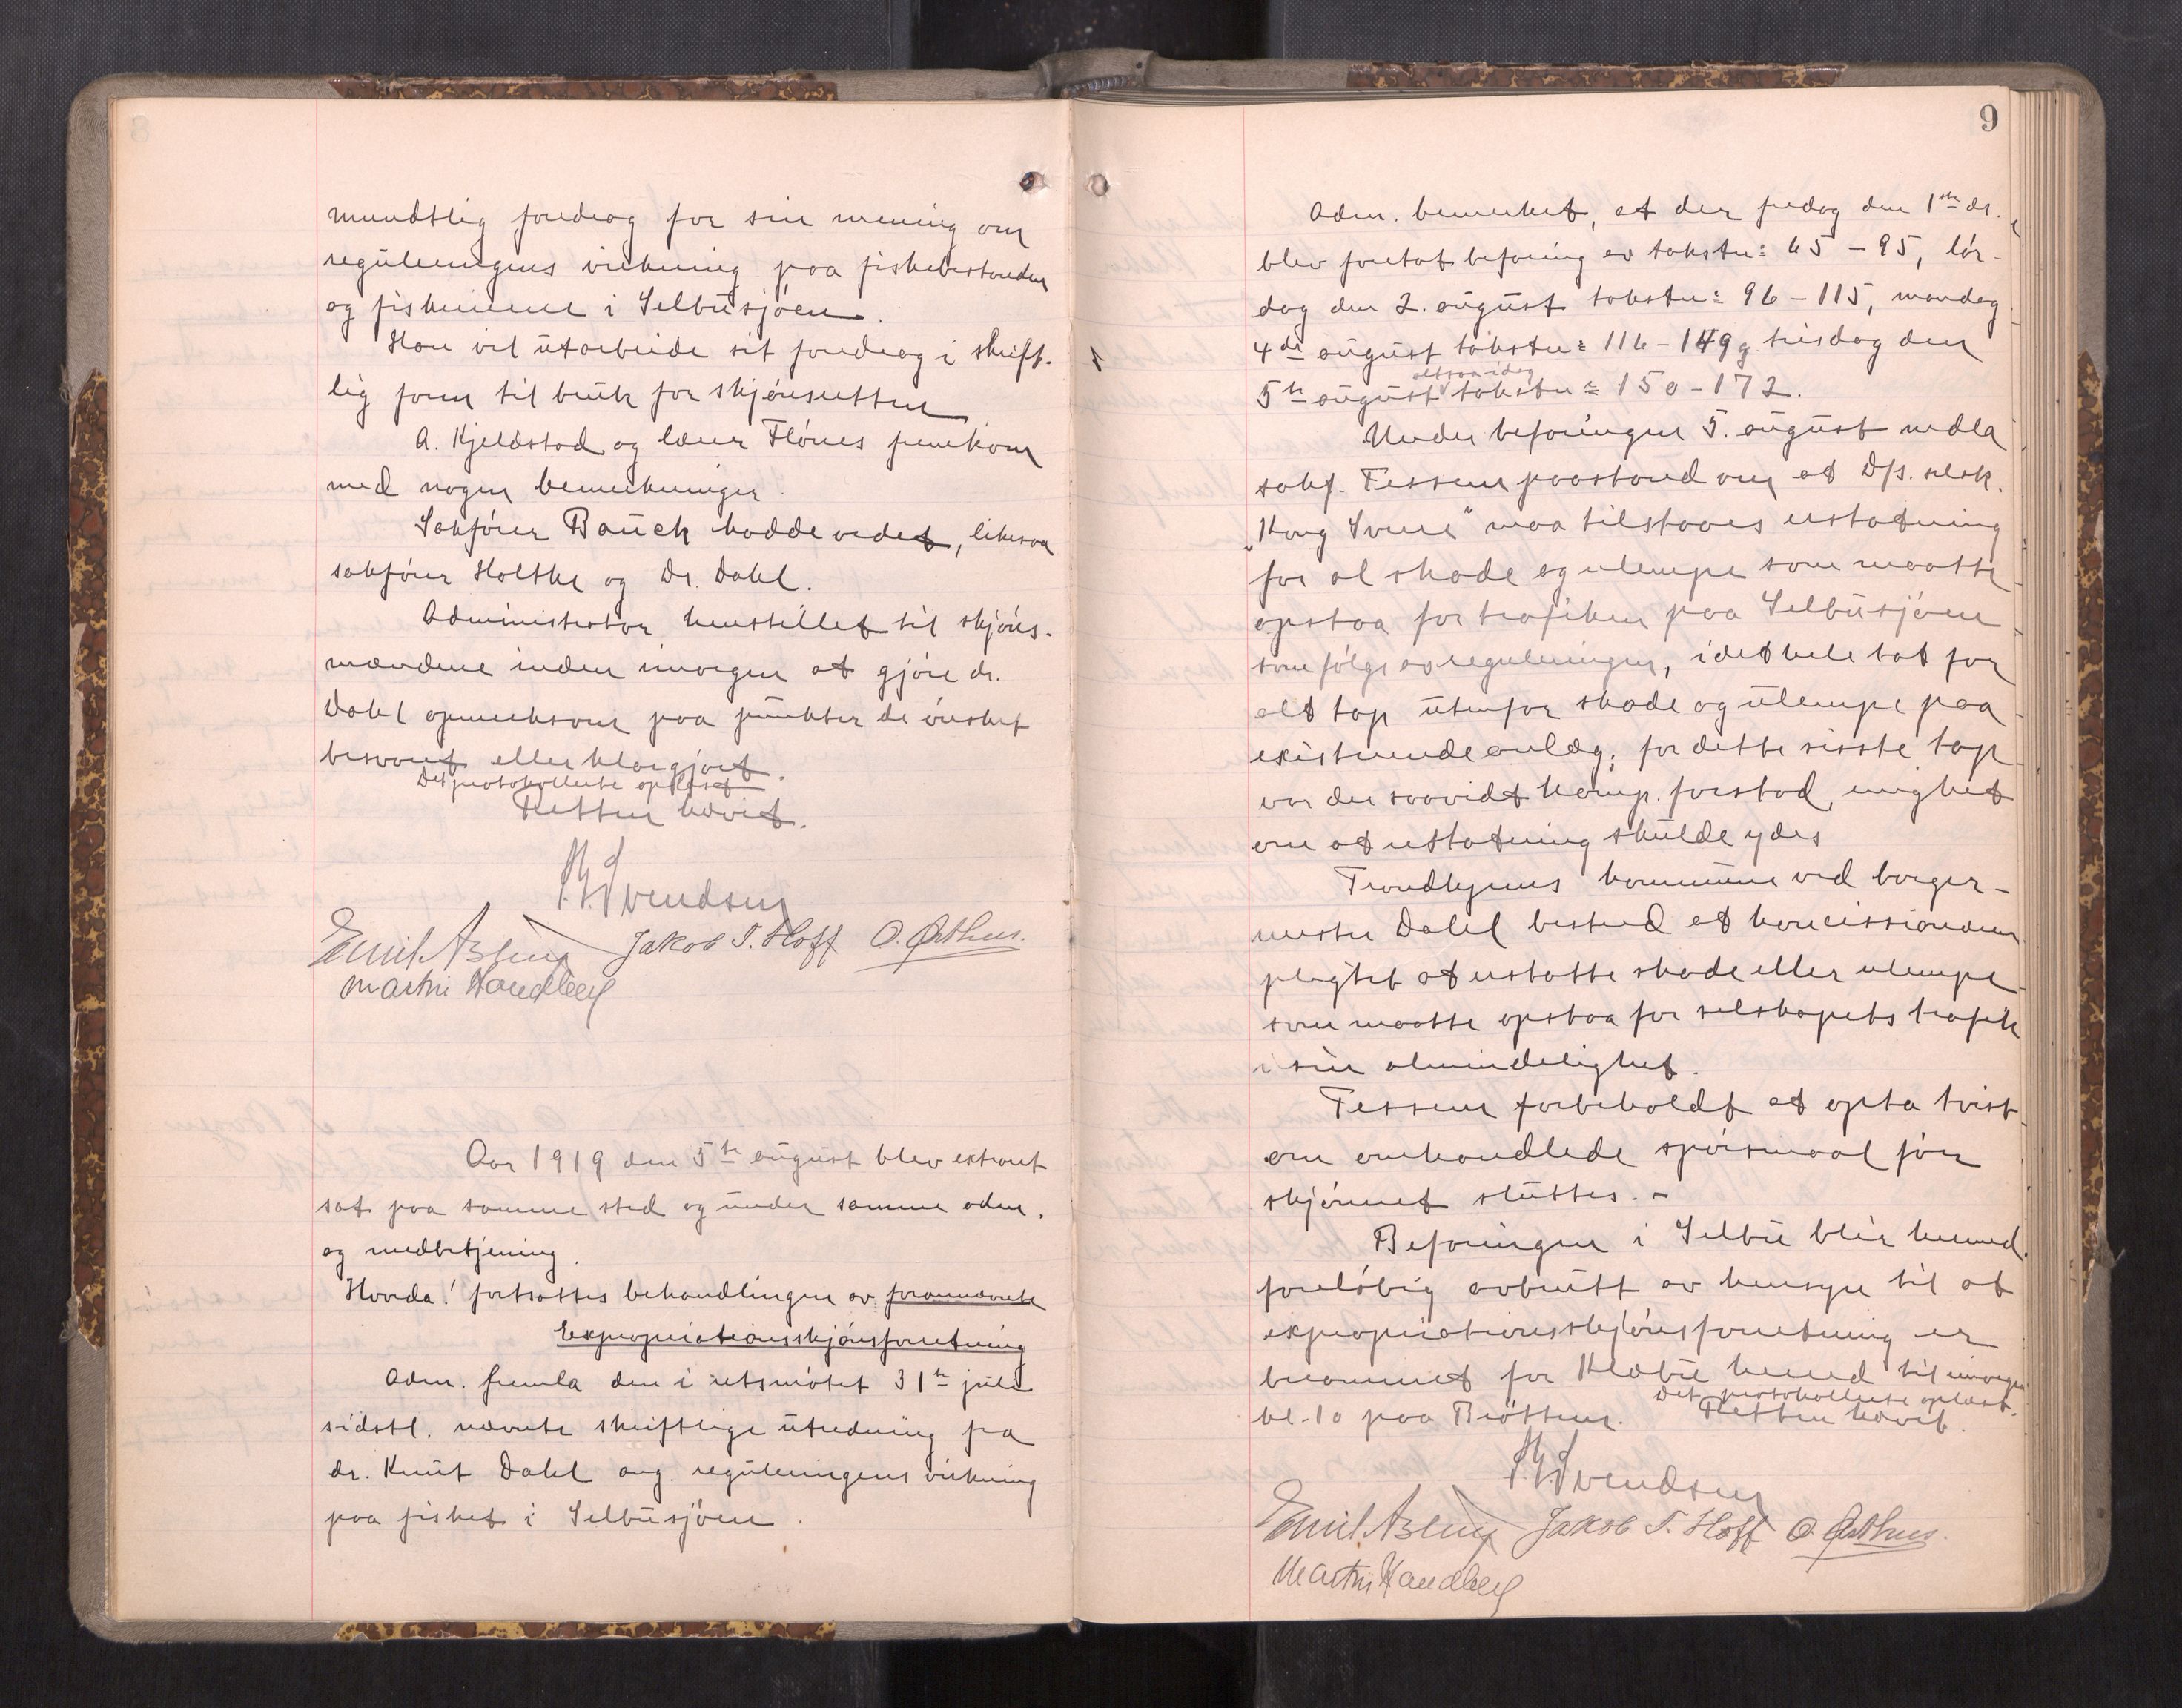 8
mundtlig foredrag for sin mening om
reguleringens virkning paa fiskebestanden
og fiskeriene i Selbusjöen.
Han vil utarbeide sit foredrag i skrift-
lig form til bruk for skjönsretten
A. Kjeldstad og lærer Flönes fremkom
med nogen bemerkninger.
Sakförer Bauck hadde ordet, likesaa
sakförer Holtke og Dr. Dahl.
Administrator henstillet til skjöns-
mændene inden imorgen at gjöre dr.
Dahl opmerksom paa punkter de önsket
besvaret eller klargjort.
Det protokollerte oplæst
Retten hævet.
Svendsen
Emil Jakob T. Hoff O. Østhus.
Martin Handberg
Aar 1919 den 5te august blev extraret
sat paa samme sted og under samme adm.
og medbetjening.
Hvorda! fortsattes behandlingen av forannævnte
Expropriationsskjönsforretning
Adm. fremla den i retsmötet 31te juli
sidstl. nævnte skriftlige utredning fra
dr. Knut Dahl ang. reguleringens virkning
paa fisket i Selbusjöen.
9
Adm. bemerket, at der fredag den 1ste ds.
blev foretat befaring av takstnr: 65 - 95, lör-
dag den 2. august takstnr: 96 - 115, mandag
4de august takstnr: 116 - 149 og tirsdag den
altsaa idag
5te august takstnr: 150 - 172.
Under befaringen 5. august nedla
sakf. Tessem paastand om at D/s. selsk.
„Kong Sverre" maa tilstaaes erstatning
for al skade og ulempe som maatte
opstaa for trafiken paa Selbusjöen
som fölge av reguleringen, i det hele tat for
alt tap utenfor skade og ulempe paa
existerende anlæg; for dette sisste tap
var der saavidt komp. forstod, enighet
om at erstatning skulde ydes
Trondhjems kommune ved borger-
mester Dahl bestred at koncissionæren
pligtet at erstatte skade eller ulempe
som maatte opstaa for selskapets trafik
i sin almindelighet.
Tessem forbeholdt at opta tvist
om omhandlede spörsmaal för
skjönnet sluttes. -
Befaringen i Selbu blir hermed
foreløbig avbrutt av hensyn til at
expropriationsskjönsforretning er
berammet for Klæbu herred til imorgen
kl. 10 paa Bröttem. Det protokollerte oplæst.
Retten hævet.
Svendsen
Emil Jakob T. Hoff O. Østhus.
Martin Handberg